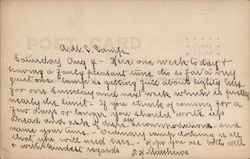 POST CARD
A.M.C. Camp
Saturday Aug 4 - Here one week today &
having a fairly pleasant time tho so far a very
quiet one. Camp is getting full about eighty here
for over Sunday and next week which is pretty
nearly the limit - If you think of coming for a
few days or longer you should write up
ahead and ask for accommodations and
name your time - Ordinary camp clothing is all
that you will need here. - Hope you are both well
& with kindest regards